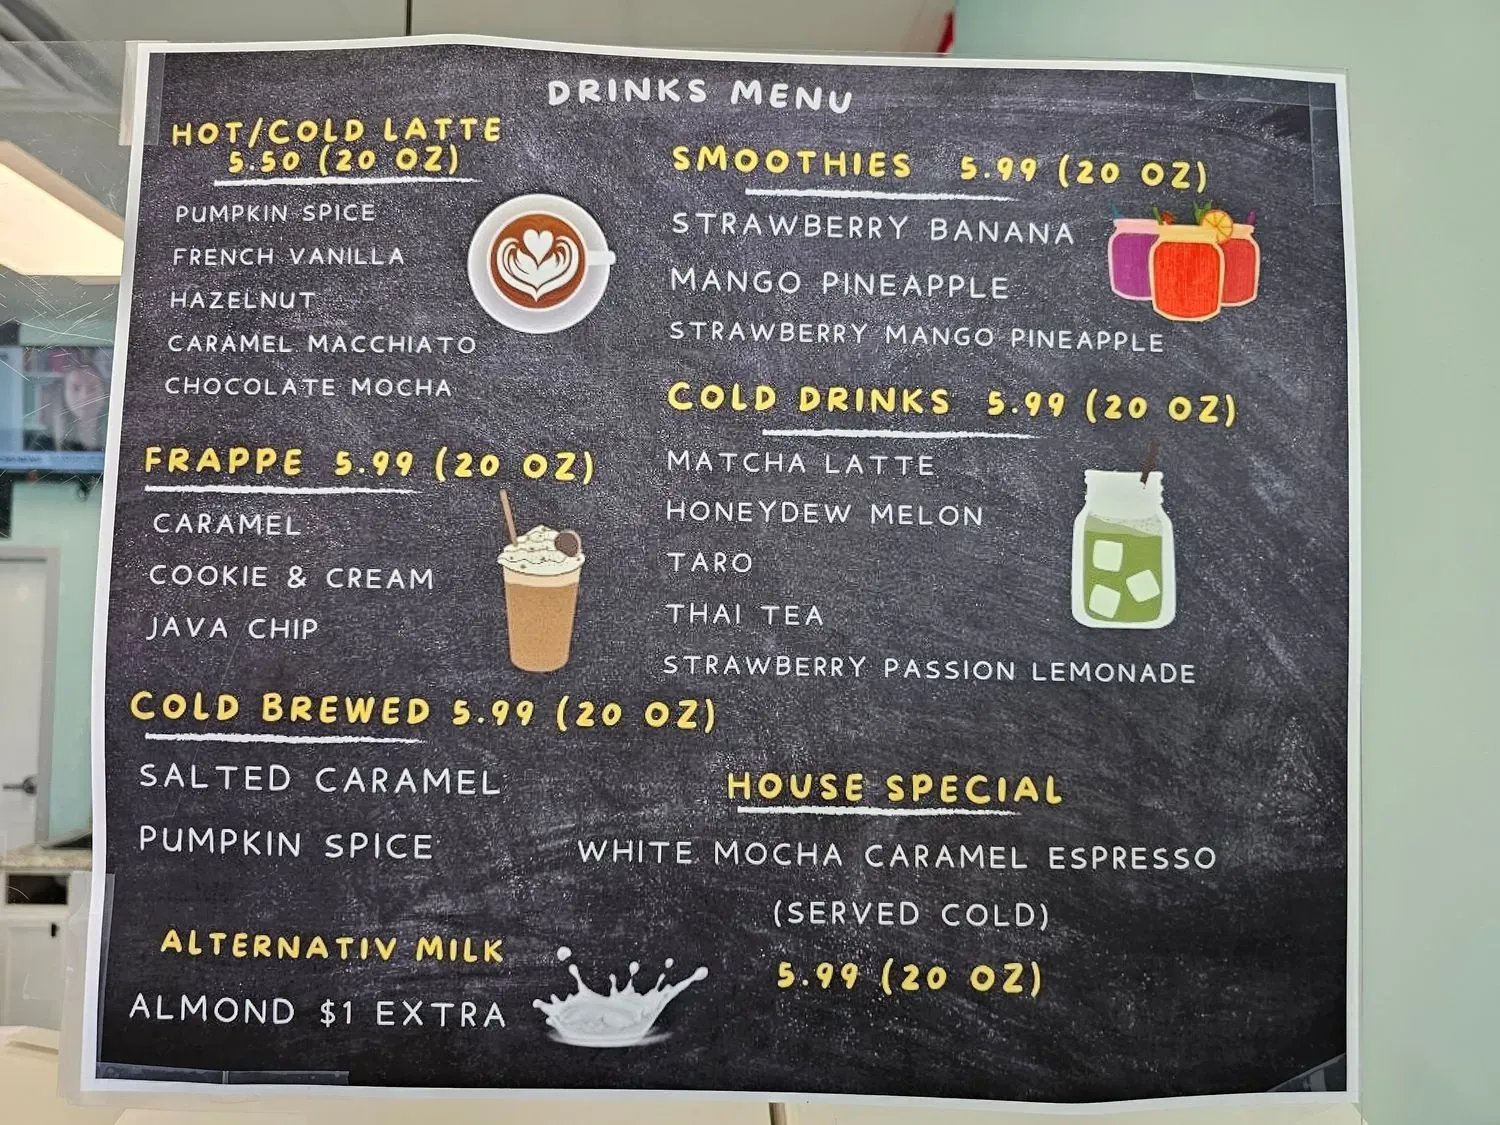 DRINKS MENU
HOT/COLD LATTE
5.50 (20 OZ)
PUMPKIN SPICE
FRENCH VANILLA
HAZELNUT
CARAMEL MACCHIATO
CHOCOLATE MOCHA
FRAPPE 5.99 (20 OZ)
CARAMEL
COOKIE & CREAM
JAVA CHIP
COLD BREWED 5.99 (20 OZ)
SALTED CARAMEL
PUMPKIN SPICE
ALTERNATIV MILK
ALMOND $1 EXTRA
SMOOTHIES 5.99 (20 OZ)
STRAWBERRY BANANA
MANGO PINEAPPLE
STRAWBERRY MANGO PINEAPPLE
COLD DRINKS 5.99 (20 OZ)
MATCHA LATTE
HONEYDEW MELON
TARO
THAI TEA
STRAWBERRY PASSION LEMONADE
HOUSE SPECIAL
WHITE MOCHA CARAMEL ESPRESSO
(SERVED COLD)
5.99 (20 OZ)